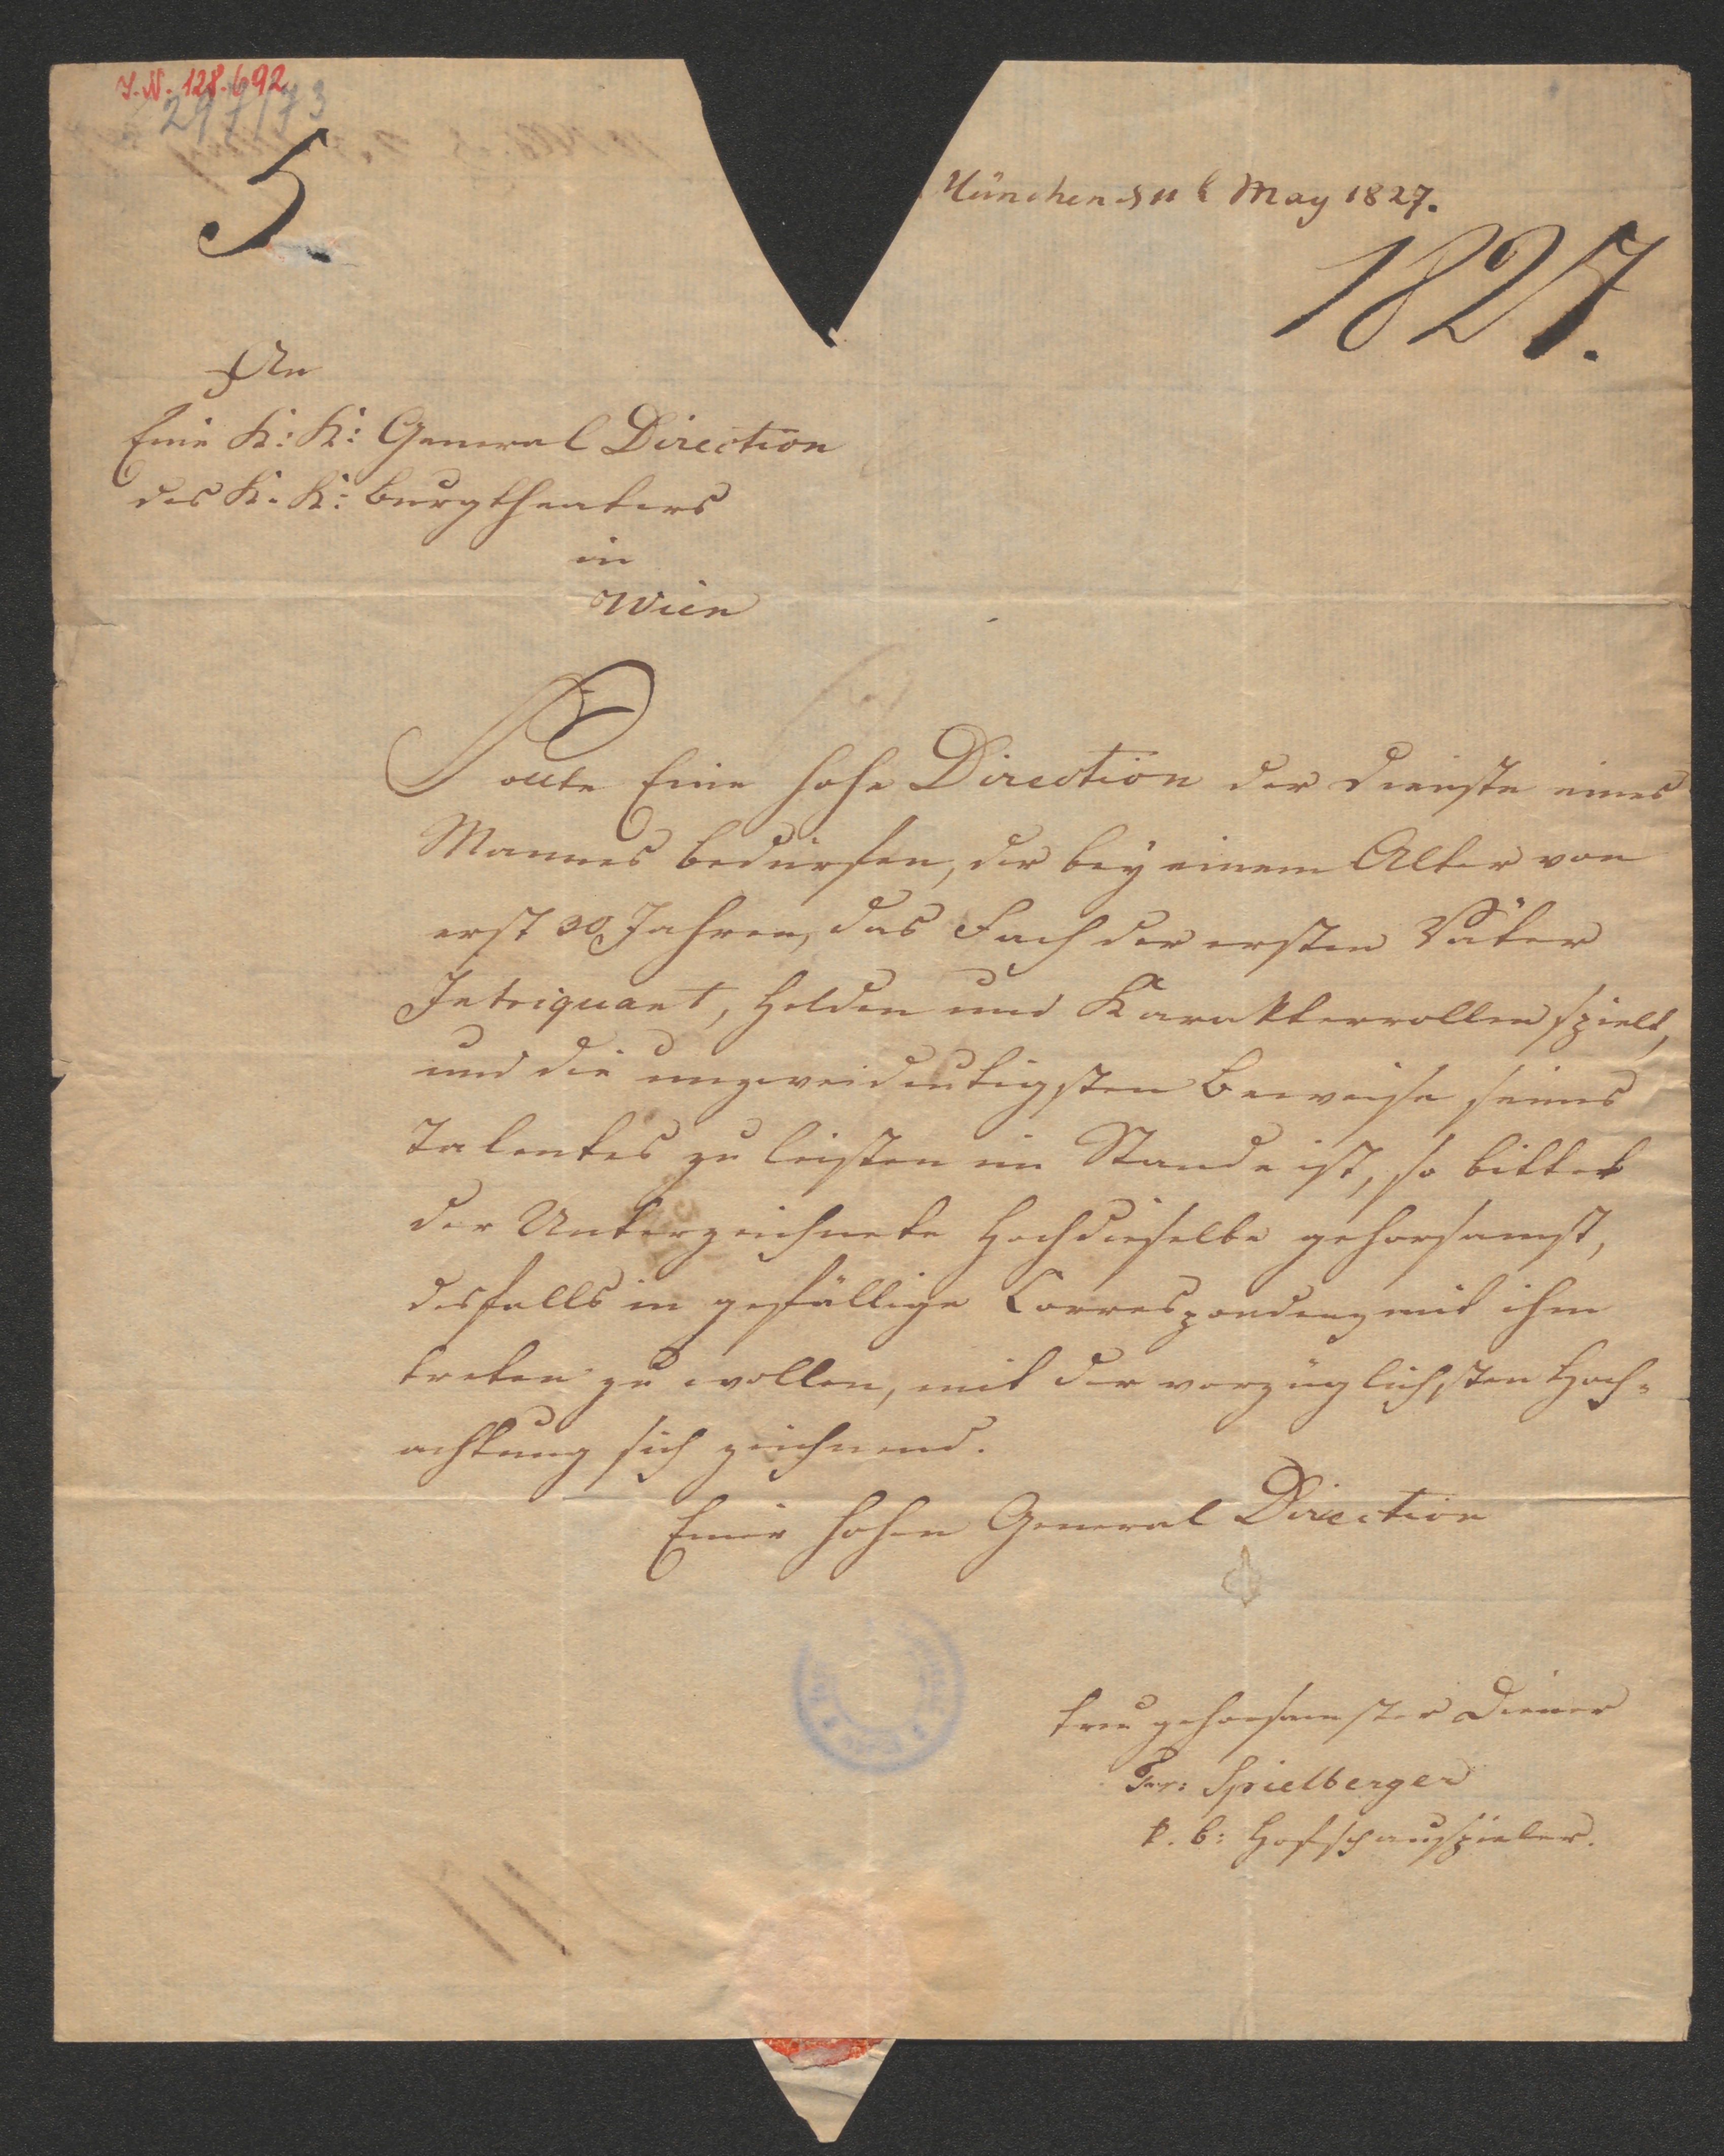 I.N. 128.692
297173
5
München d 11 t May 1827.
1827.
An
Eine K: K: General Direction
des K. K: Burgtheaters
in
Wien
Sollte Eine hohe Direction der Dienste eines
Mannes bedürfen, der bey einem Alter von
erst 30 Jahren, das Fach der ersten Väter
Intriquant, Helden und Karakterrollen spielt,
und die unzweideutigsten Beweise seines
Talentes zu leisten im Stande ist, so bittet
der Unterzeichnete Hochdieselbe gehorsamst,
desfalls in gefällige Correspondenz mit ihm
treten zu wollen, mit der vorzüglichsten Hoch-
achtung sich zeichnend.
Einer hohen General Direction
treu gehorsamster Diener
Spielberger
k. b: Hofschauspieler.